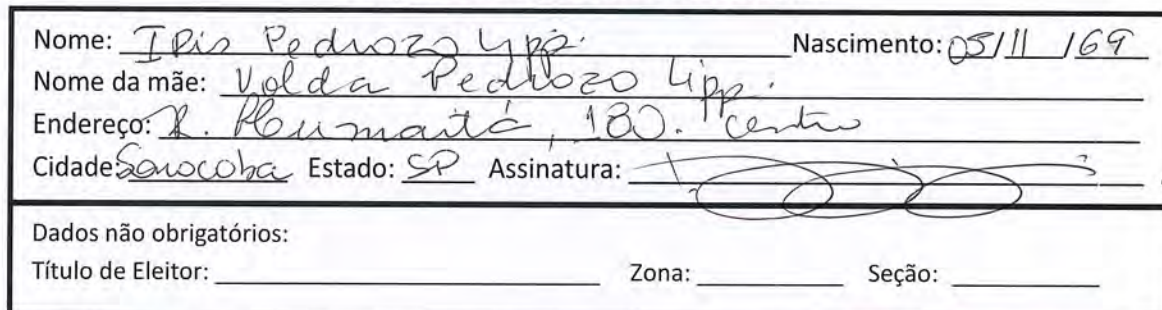 Nome: IRis Pedrozo Lipp. Nascimento: 05/11/69
Nome da mãe: Volda Pedrozo Lipp.
Endereço: R. Humaitá, 180. centro
Cidade: Sorocoba Estado: SP Assinatura:
Dados não obrigatórios:
Título de Eleitor: Zona: Seção: